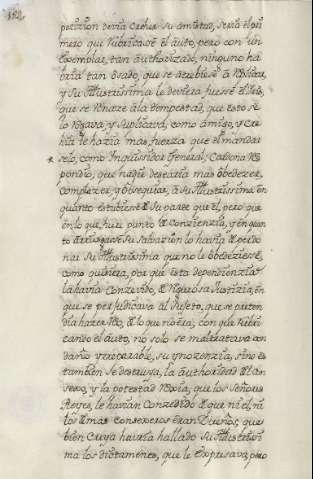 peticion devia creher su amistad, seria el pri
mero que rubricase el auto, pero con un
exemplar, tan authorizado, ninguno ha
bria tan osado, que se atrebiese à replicar,
y su Illustrissima le deviera fuesse el Iris,
que se echase à la tempestad, que esto se
lo rogava, y suplicava, como amigo, y cre
hia le hazia mas fuerza que el mandar
selo, como Inquisidor General; Cardona res
pondio, que nadie desearia mas obedezer,
complazer, y obsequiar, à su Illustrissima en
quanto estubiese de su parte que el, pero que
en lo que hera punto de conzienzia, y en quan
to arriesgase su salvazion lo havia de perdo
nar su Illustrissima que no le obedeziese,
como quisiera, por que esta dependienzia
la havia conzevido, de riguosa Justizia, en
que se perjudicava al sujeto, que se preten
dia hazer reo, de lo que no era, con que rubri
cando el auto, no solo se maltratava con
daño yrreparable, su ynozenzia, sino es
tambien se destruya, la authoridad del con
sexo, y la potestad rexia, que los Señores
Reyes, le havian conzedido de que ni el, ni
los demas consexeros eran Dueños; que
bien creya havria hallado su Illustrissi
ma los dictamenes, que le expresava, pero